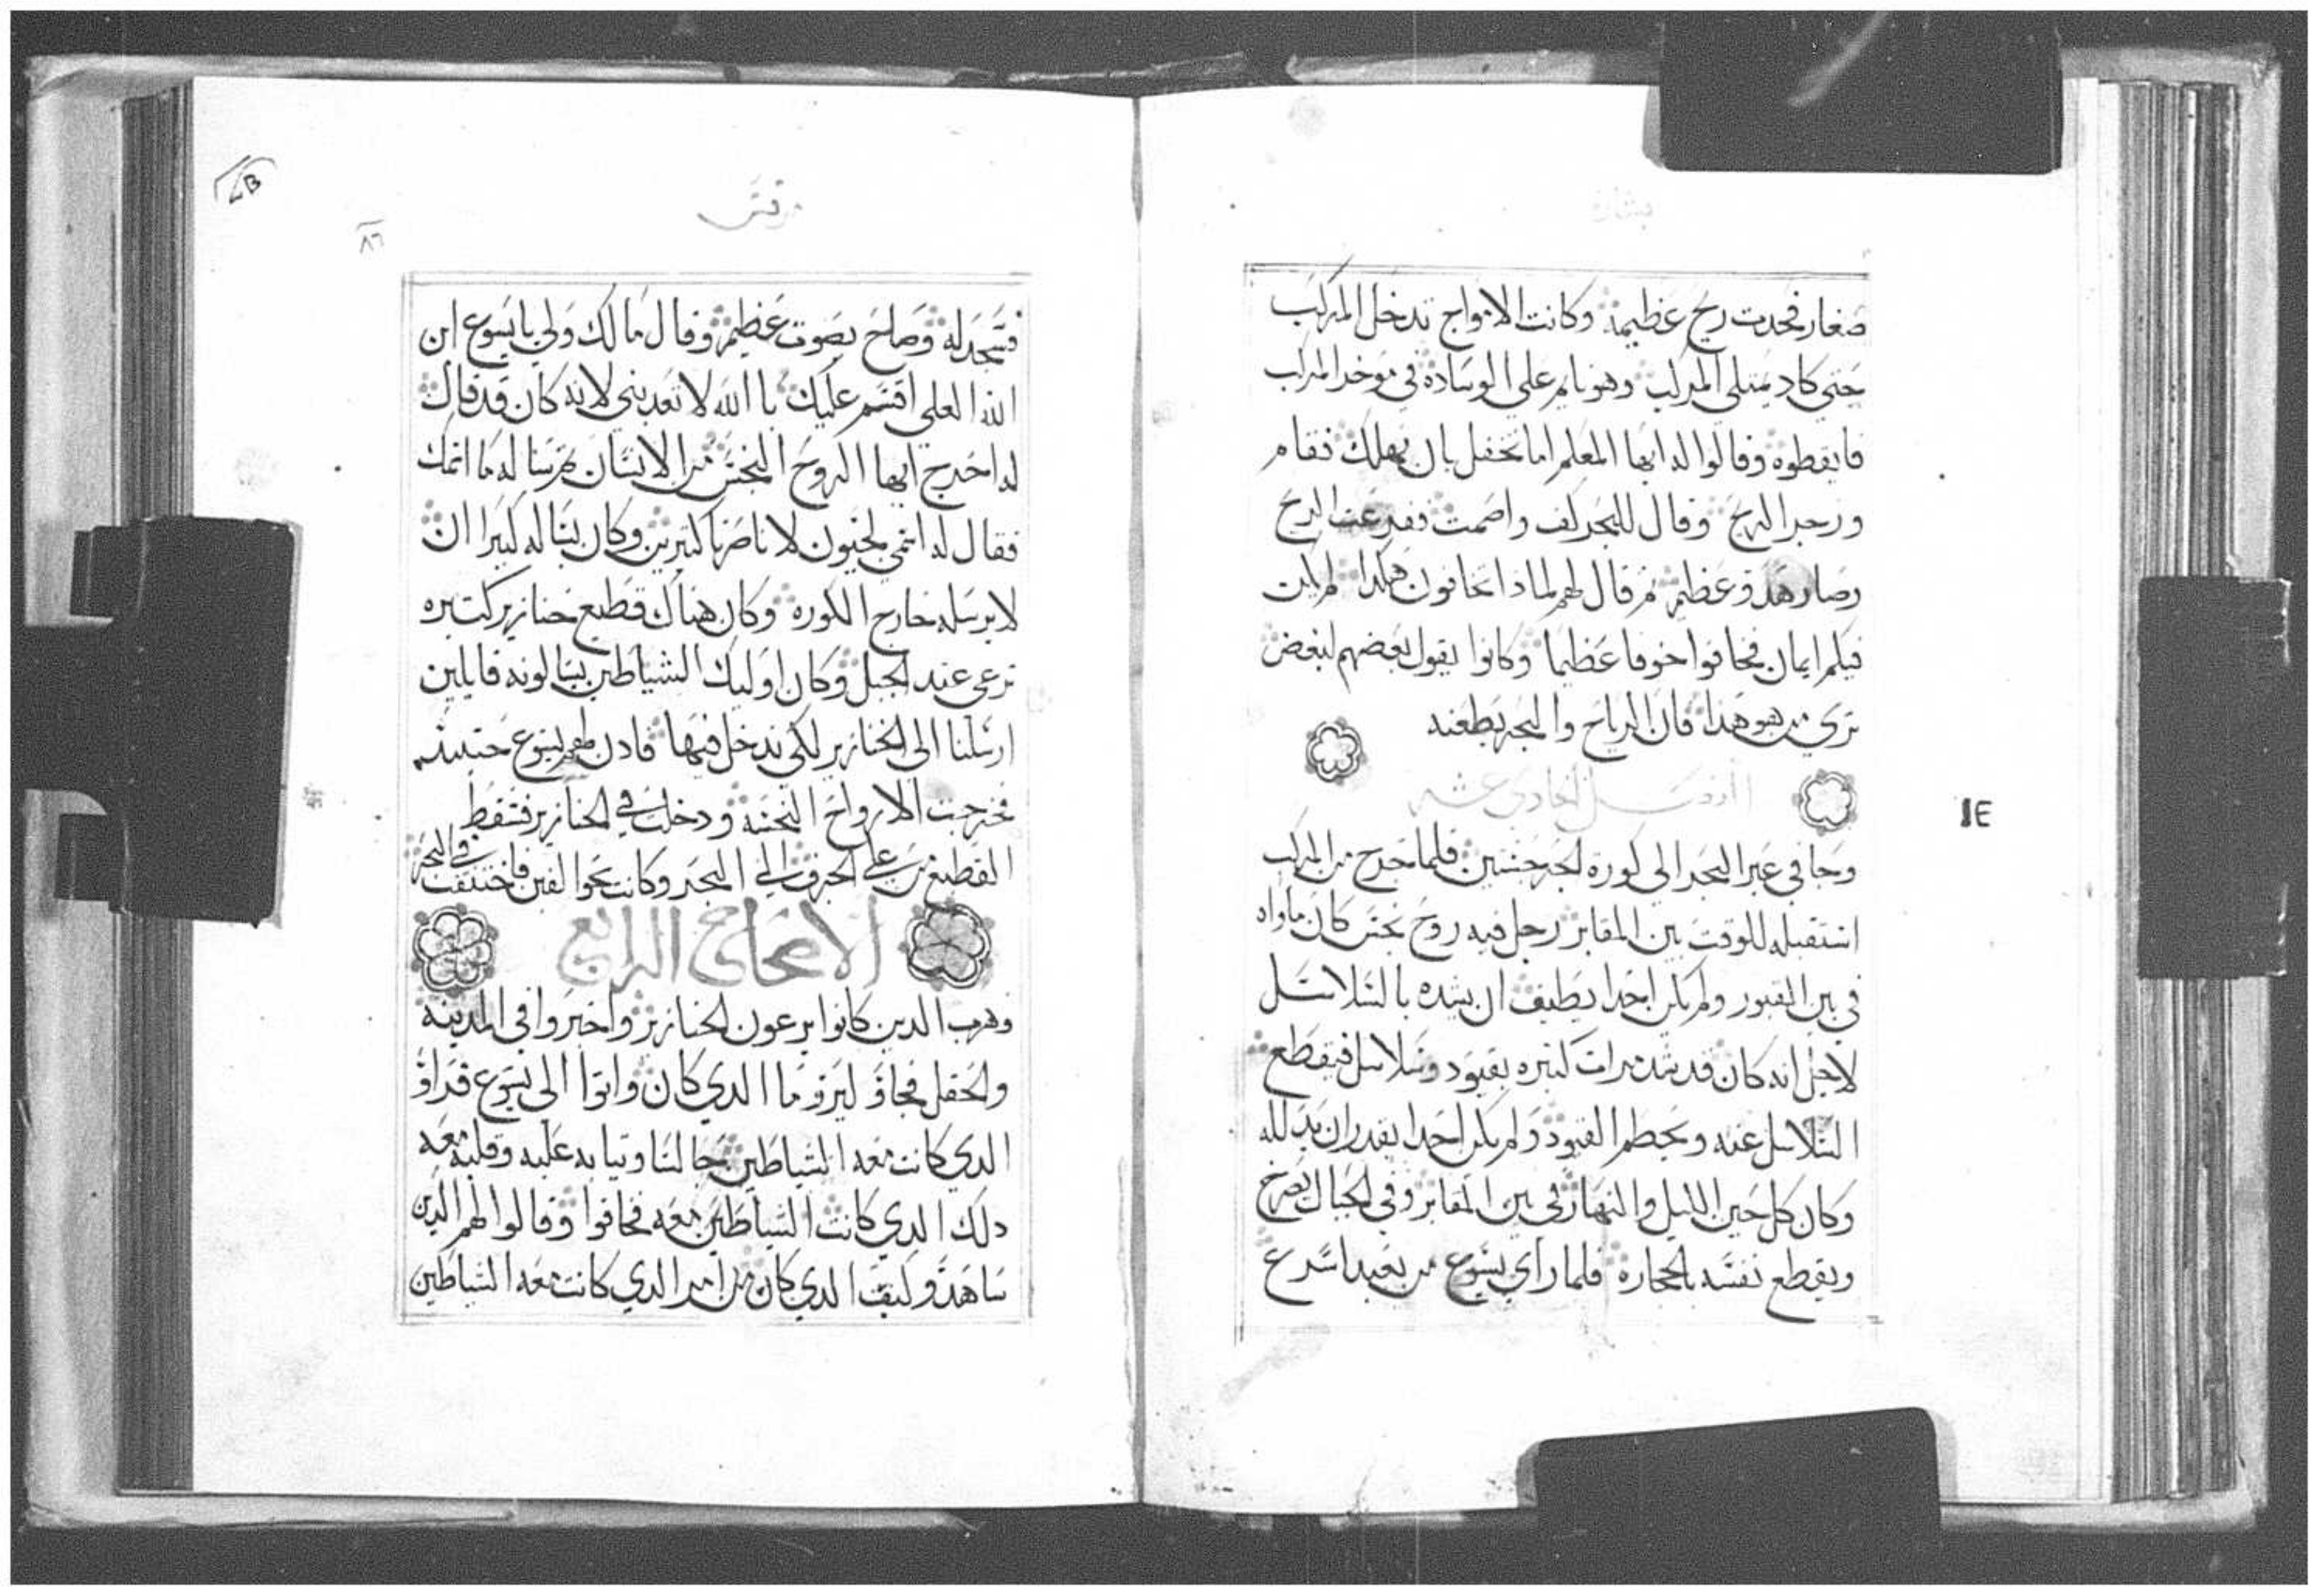 بشارة
صغار فحدت ريح عظيمة وكانت الامواج تدخل المركب
حتي كاد يمتلي المركب وهو نايم علي الوسادة في موخر المركب
فايقطوه وقالوا له ايها المعلم اما تحفل بان نهلك فقام
وزجر الريح وقال للبحر كف واصمت ففرغت الريح
وصار هدو عظيم ثم قال لهم لمادا تخافون هكدا الم يكن
فيكم ايمان فخافوا خوفا عظيما وكانوا يقول بعضهم لبعض
تري من هو هدا فان الرياح والبحر يطعنه
الفصل الحادي عشر
وجا في عبر البحر الي كورة الجرجسيين فلما خرج من المركب
استقبله للوقت بين المقابر رجل فيه روح نجس كان ماواه
في بين القبور ولم يكن احدا يطيف ان يشده بالسلاسل
لاجل انه كان قد شد مرات كتيره بقيود وسلاسل فيقطع
السلاسل عنه ويحطم القيود ولم يكن احدا يقدر ان يدلله
وكان كل حين الليل والنهار في بين المقابر وفي الجبال يصرخ
ويقطع نفسه بالحجارة فلما راي يسوع من بعيد اسرع
IE
مرقس
٨٦
فسجد له وصاح بصوت عظيم وقال ما لك ولي يا يسوع ابن
الله العلي اقسم عليك با الله لا تعدبني لانه كان قد قال
له اخرج ايها الروح النجس من الانسان تم سا له ما اتمك
فقال له اتمي لجيون لاناصرنا كتيرين وكان يساله كتيرا ان
لا يرسله خارج الكوره وكان هناك قطيع خنازير كتيره
ترعي عند الجبل وكان اوليك الشياطين يسالونه قايلين
ارسلنا الي الخنازير لكي ندخل فيها فادن لهم يسوع حينيد
فخرجت الارواح النجسه ودخلت في الخنازير فسقط
القطيع من علي الجرف الي البحر وكانت نحوا الفين فاختنقت في البحر
الاصحاح الرابع
وهرب الدين كانوا يرعون الخنازير واخبروا في المدينه
والحقل فجاؤ ليرو ما الدي كان واتوا الي يسوع فراؤ
الدي كانت معه الشياطين جالسا وتيابه عليه وقلبه معه
دلك الدي كانت الشياطين معه فخافوا وقالوا لهم الدين
شاهدو كيف الدي كان من امر الدي كانت معه الشياطين